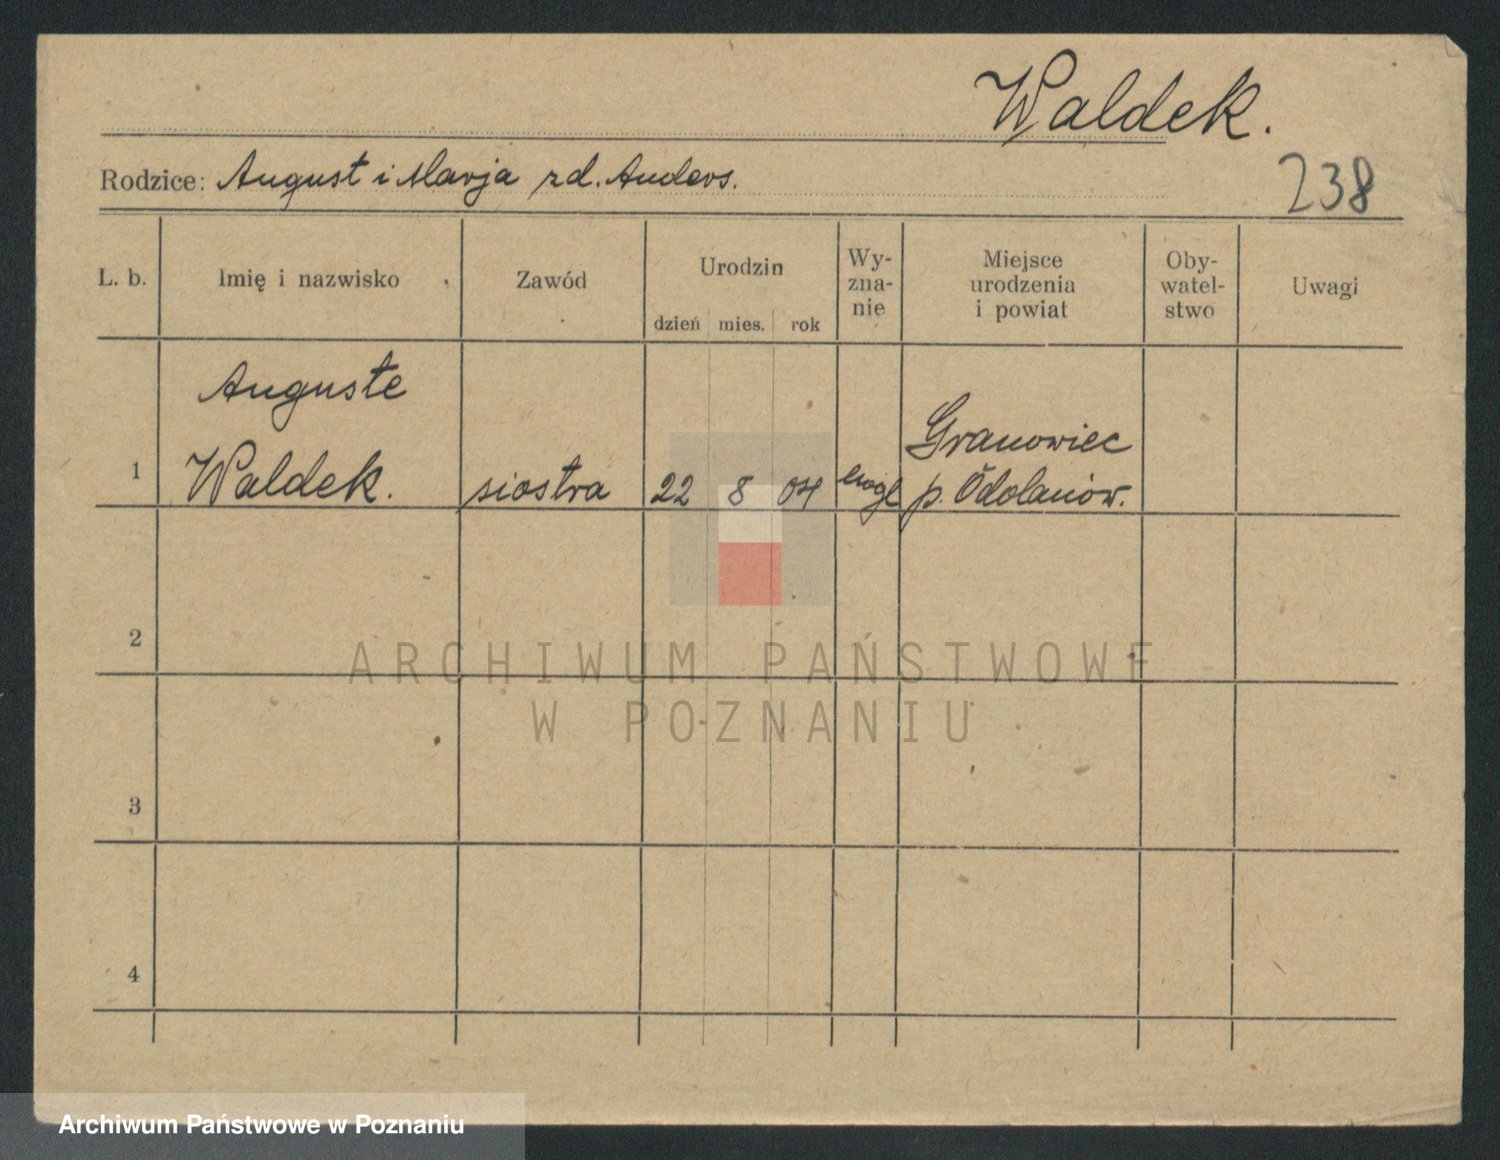 Waldek.
Rodzice: August i Marja zd. Anders.
238
L. b. Imię i nazwisko Zawód Urodzin dzień mies. rok Wy-zna-nie Miejsce urodzenia i powiat Oby-watel-stwo Uwagi
Auguste
1 Waldek. siostra 22 8 04 ewgl Granowiec
p. Odolanów.
2
ARCHIWUM PAŃSTWOWE
W POZNANIU
3
4
Archiwum Państwowe w Poznaniu